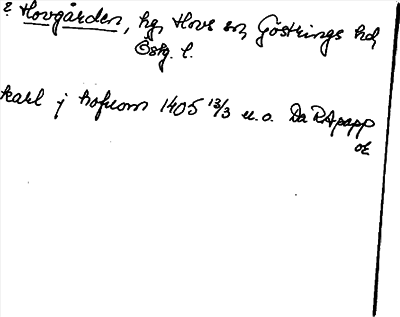 ? Hovgården, hg, Hovs sn, Göstrings hd,
Östg. l.
karl j hofuom 1405 13/3 u.o. Da RApapp
oE